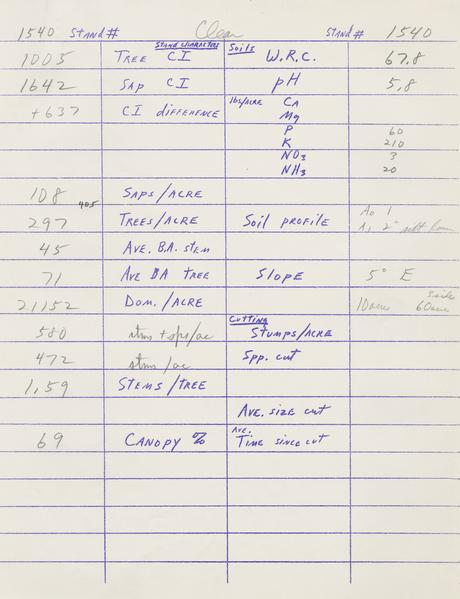 1540 STAND# Clear STAND# 1540
STAND CHARACTERS Soils
1005 TREE CI W.R.C. 67.8
1642 SAP CI pH 5.8
+637 CI DIFFERENCE lbs/ACRE CA
Mg
P 60
K 210
NO3 3
NH3 20
108 SAPS/ACRE
405
297 TREES/ACRE Soil PROFILE A0 1
A1 2"
45 AVE. B.A. STEM
71 AVE BA TREE SLOPE 5° E
21152 DOM./ACRE 10 acre 60 acre
CUTTING
580 stms + sps/ac STUMPS/ACRE
472 stms/ac Spp. cut
1.59 STEMS/TREE
AVE. SIZE CUT
69 CANOPY % AVE. TIME SINCE CUT